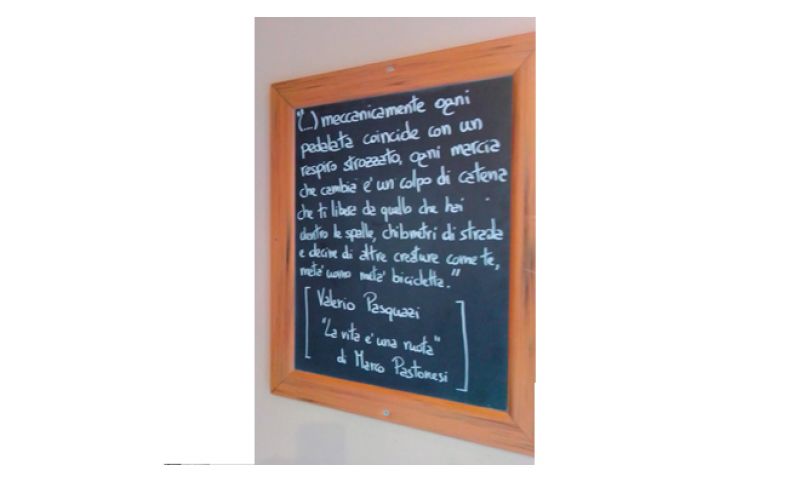 "(...) meccanicamente ogni
pedalata coincide con un
respiro strozzato, ogni marcia
che cambia e' un colpo di catena
che ti libera da quello che hai
dentro le spalle, chilometri di strada
e decine di altre creature come te,
meta' uomo meta' bicicletta."
[ Valerio Pasquazi
"La vita e' una ruota"
di Marco Pastonesi ]